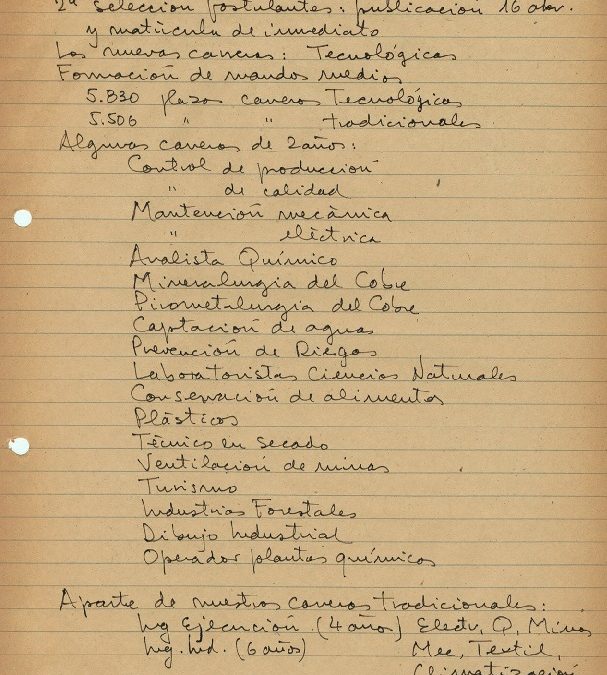 2ª selección postulantes: publicación 16 abr.
y matrícula de inmediato
Las nuevas carreras: Tecnológicas
Formación de mandos medios
5.830 plazas carreras Tecnológicas
5.506 " " tradicionales
Algunas carreras de 2 años:
Control de producción
" de calidad
Mantención mecánica
" eléctrica
Analista Químico
Mineralurgia del Cobre
Pirometalurgia del Cobre
Captación de aguas
Prevención de Riegos
Laboratoristas Ciencias Naturales
Conservación de alimentos
Plásticos
Técnico en secado
Ventilación de minas
Turismo
Industrias Forestales
Dibujo Industrial
Operador plantas químicas
Aparte de nuestras carreras tradicionales:
Ing Ejecución (4 años) Electr, Q, Minas
Ing. Ind. (6 años) Mec, Textil,
Climatización